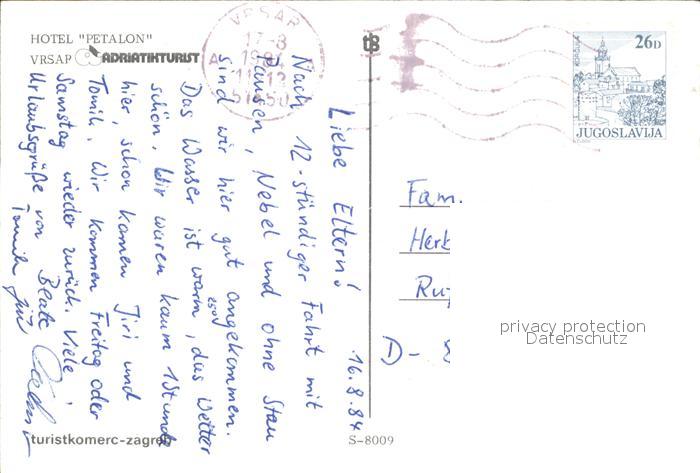 HOTEL "PETALON"
VRSAR
ADRIATIKTURIST
VRSAR
17-8
1984
11-12
A
tB
26D
KORČULA
JUGOSLAVIJA
16.8.84
Liebe Eltern!
Nach 12-stündiger Fahrt mit
Pausen, Nebel und ohne Stau
sind wir hier gut angekommen.
Das Wasser ist warm, 25° und das Wetter
schön. Wir waren kaum 1 Stunde
hier, schon kamen Jiri und
Tomik. Wir kommen Freitag oder
Samstag wieder zurück. Viele
Urlaubsgrüße von Beate
Tomik Jiri
Fam.
Herb
Ru
D-
privacy protection
Datenschutz
turistkomerc-zagreb
S-8009